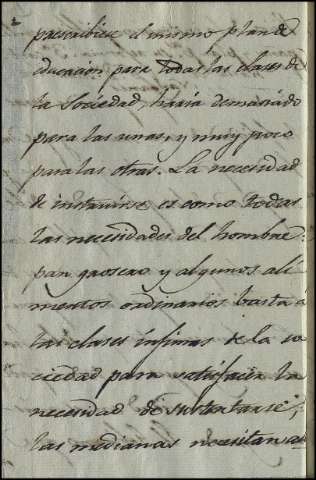 2
prescribiese el mismo plan de
educacion para todas las clases de
la Sociedad, haria demasiado
para las unas, y muy poco
para las otras. La necesidad
de instruirse es como todas
las necesidades del hombre:
pan grosero y algunos ali
mentos ordinarios basta á
las clases infimas de la so
ciedad para satisfacer la
necesidad de sustentarse;
las medianas necesitan